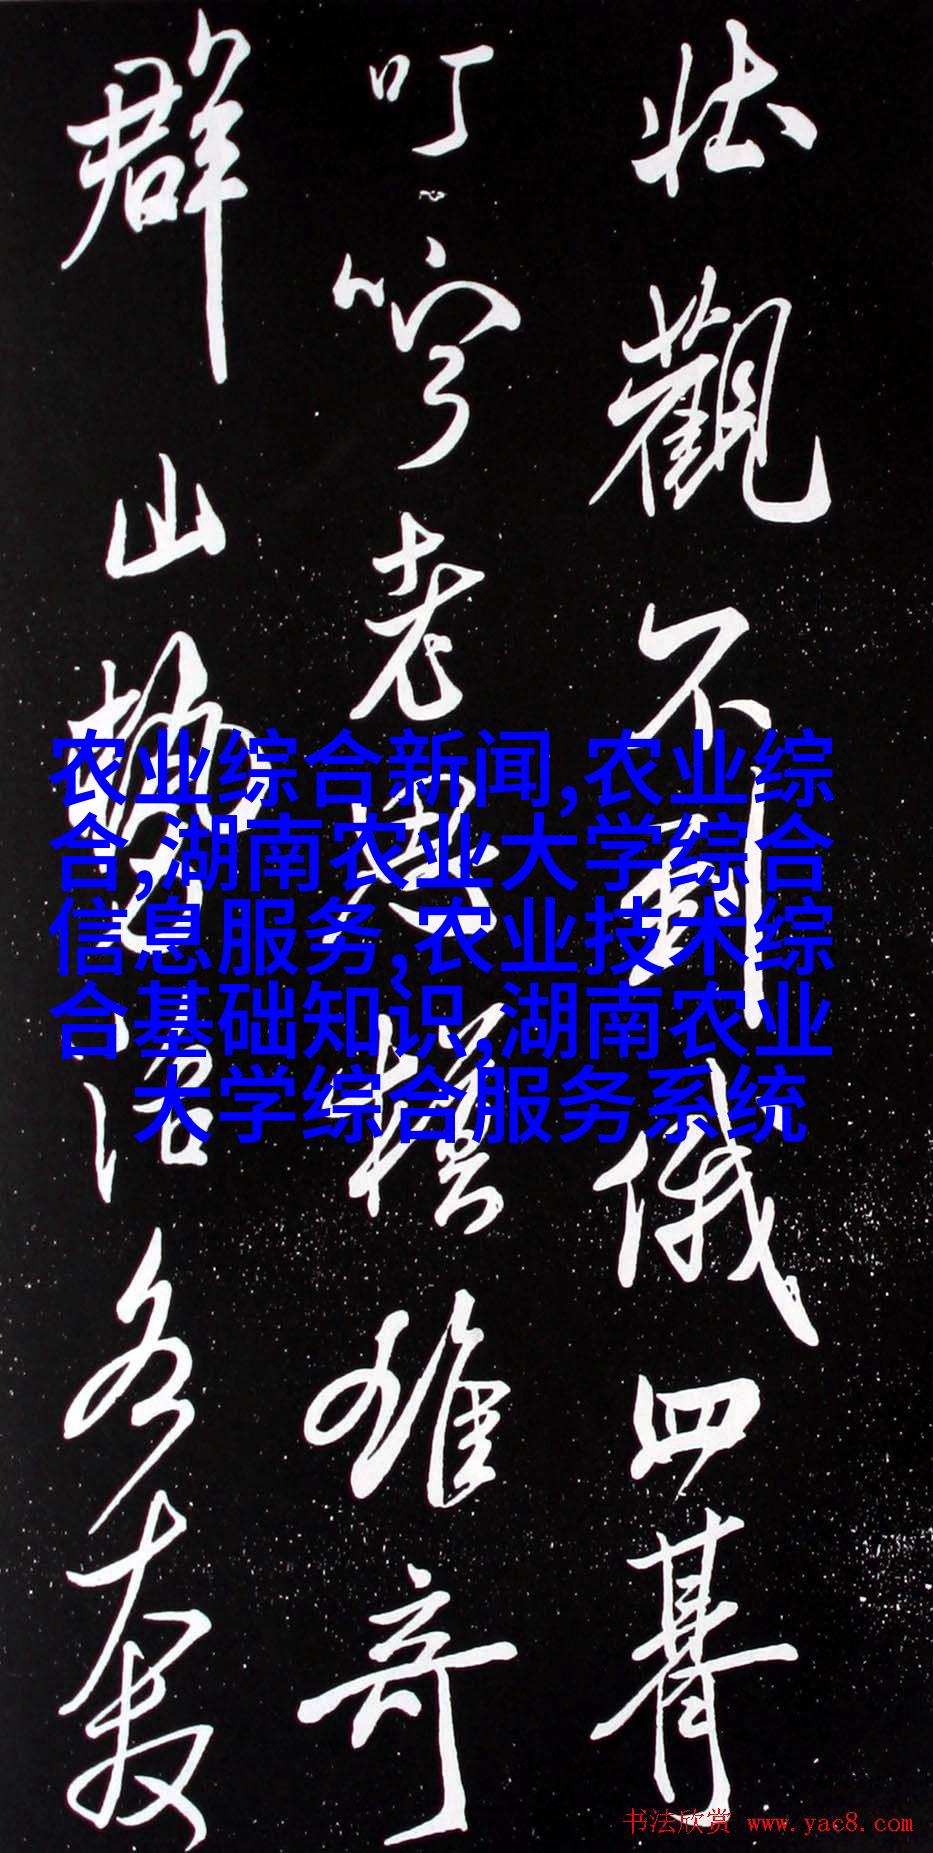 壮觀不到俄四朞
叮嚀老雄奇
群山勢各
农业综合新闻,农业综
合,湖南农业大学综合
信息服务,农业技术综
合基础知识,湖南农业
大学综合服务系统
书法欣赏 www.yac8.com